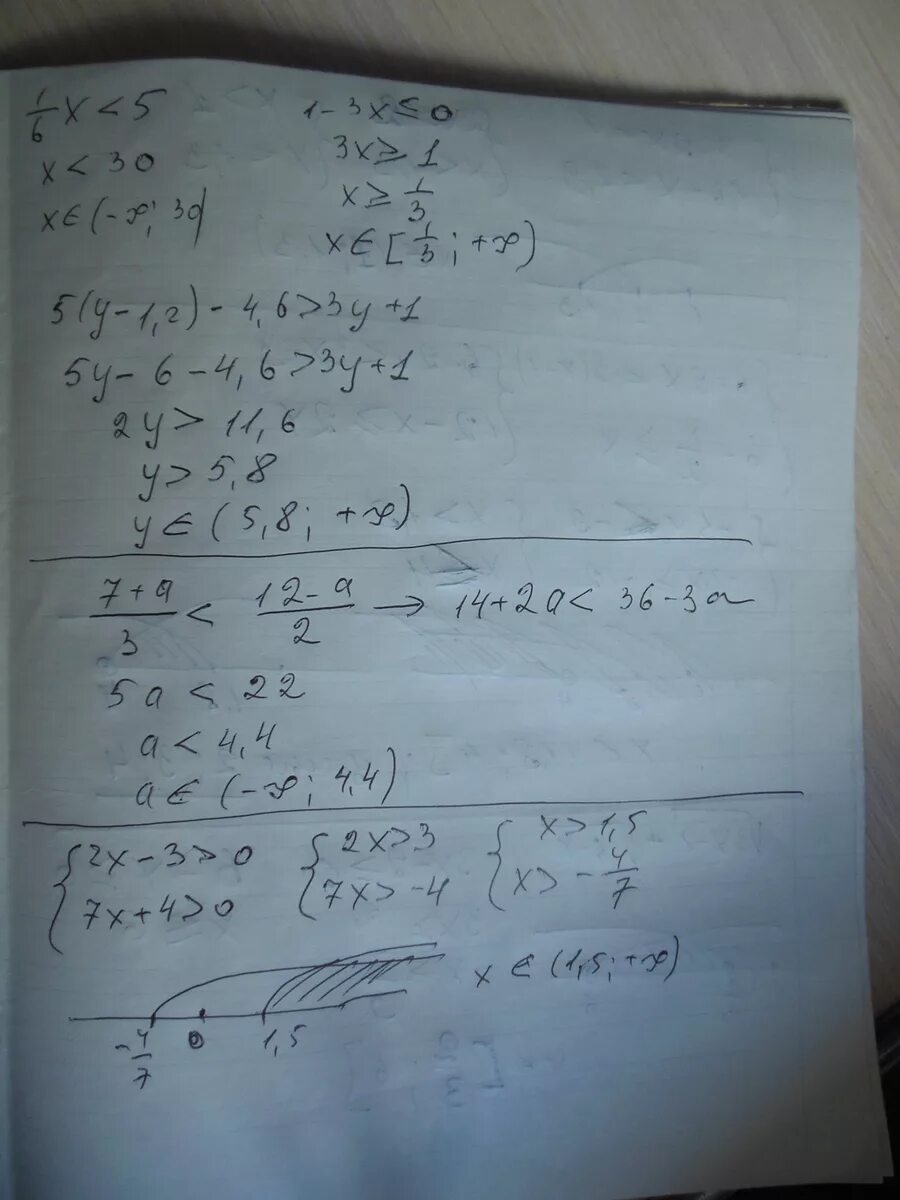 1/6 x < 5
x < 30
x ∈ (-∞; 30)
1 - 3x ≤ 0
3x ≥ 1
x ≥ 1/3
x ∈ [1/3; +∞)
5(y - 1,2) - 4,6 > 3y + 1
5y - 6 - 4,6 > 3y + 1
2y > 11,6
y > 5,8
y ∈ (5,8; +∞)
(7+a)/3 < (12-a)/2 → 14 + 2a < 36 - 3a
5a < 22
a < 4,4
a ∈ (-∞; 4,4)
{2x - 3 > 0 {2x > 3 {x > 1,5
{7x + 4 > 0 {7x > -4 {x > -4/7
x ∈ (1,5; +∞)
-4/7 0 1,5